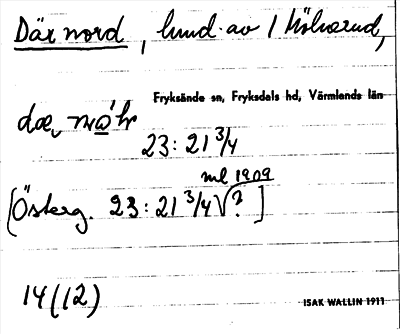 Där nord, hmd. av 1 Kölvarud,
Fryksände sn, Fryksdals hd, Värmlands län
dæ, no̲'hr
23:21 3/4
ml 1909
[Österg. 23:21 3/4 √?]
14(12)
ISAK WALLIN 1911